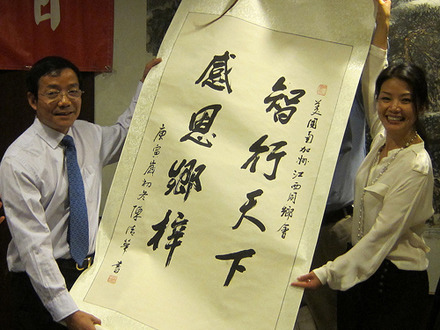 美國南加州江西同鄉會
智行天下
感恩鄉梓
庚寅歲初冬陳清華書